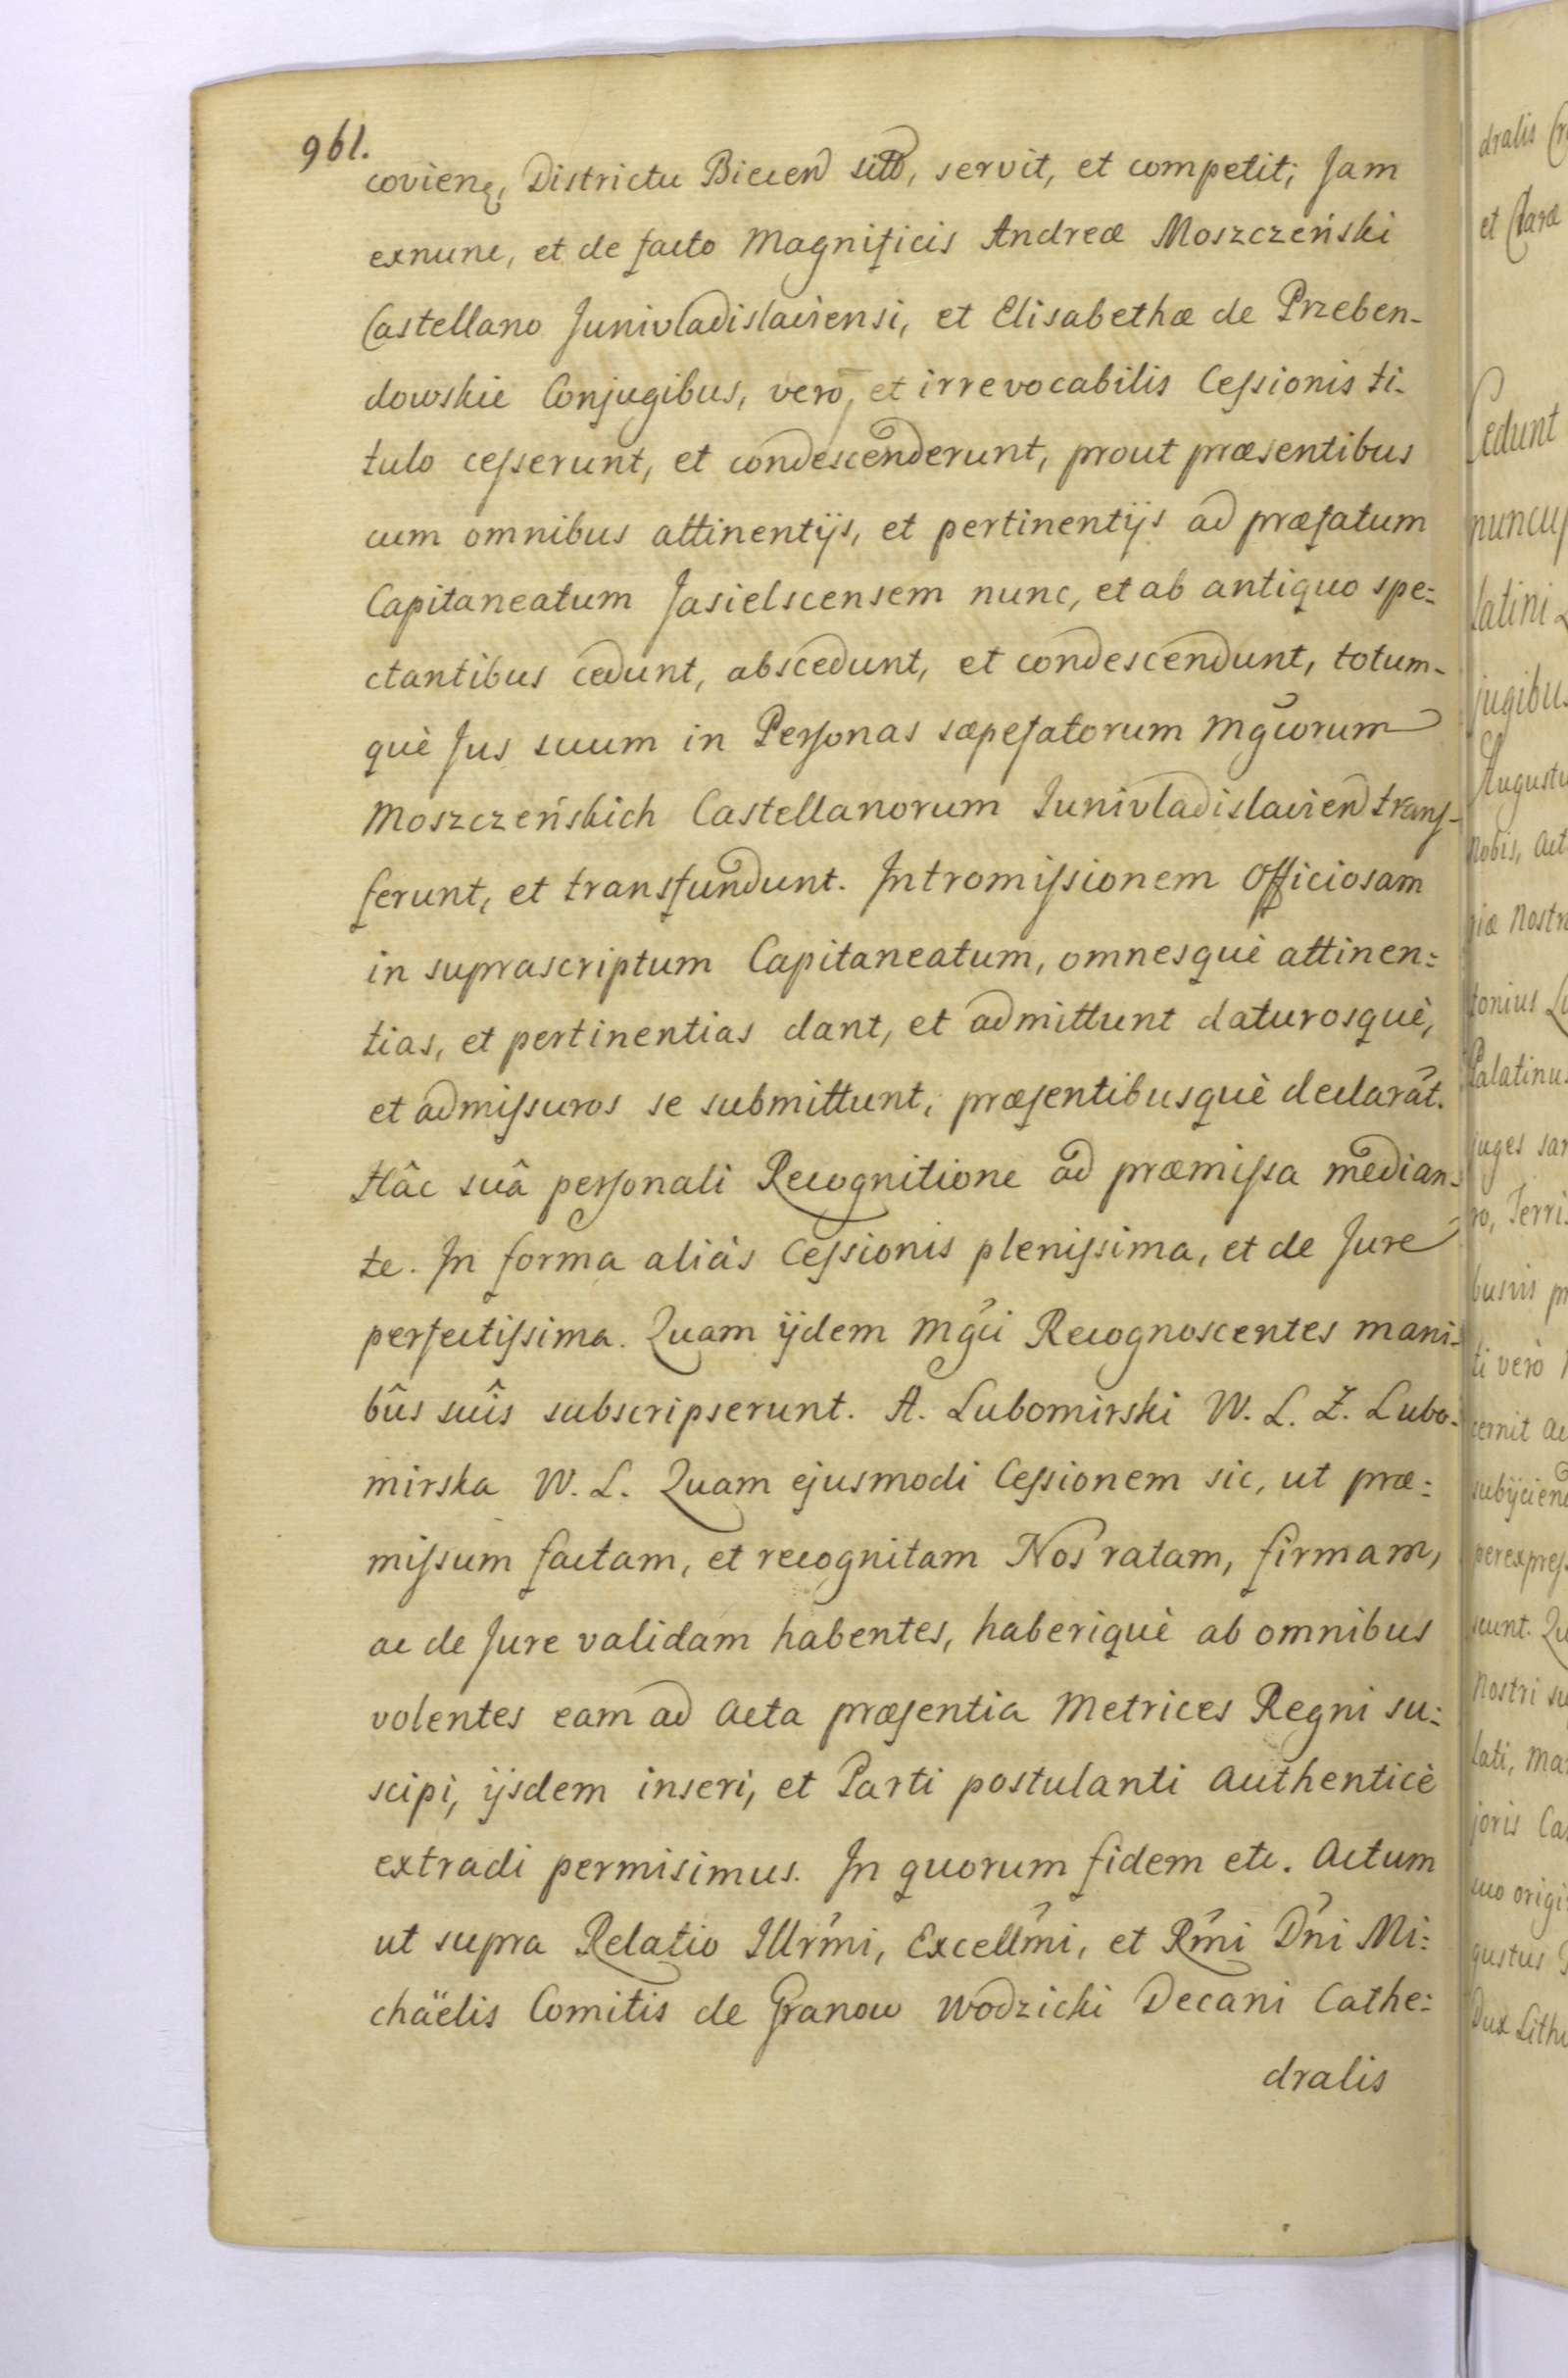 961.
covienę, Districtu Biecen sito, servit, et competit; Jam
exnunc, et de facto Magnificis Andreæ Moszczeński
Castellano Junivladislaviensi, et Elisabethæ de Przeben-
dowskie Conjugibus, vero, et irrevocabilis Cessionis ti-
tulo cesserunt, et condescenderunt, prout præsentibus
cum omnibus attinentijs, et pertinentijs ad præfatum
Capitaneatum Jasielscensem nunc, et ab antiquo spe:
ctantibus cedunt, abscedunt, et condescendunt, totum-
què Jus suum in Personas sæpefatorum Mgcorum
Moszczeńskich Castellanorum Junivladislavien trans-
ferunt, et transfundunt. Intromissionem Officiosam
in suprascriptum Capitaneatum, omnesquè attinen:
tias, et pertinentias dant, et admittunt daturosquè,
et admissuros se submittunt, præsentibusquè declarãt.
Hâc suâ personali Recognitione ad præmissa median-
te. In forma aliàs Cessionis plenissima, et de Jure
perfectissima. Quam ijdem Mgci Recognoscentes mani-
bûs suîs subscripserunt. A. Lubomirski W. L. Z. Lubo-
mirska W. L. Quam ejusmodi Cessionem sic, ut præ:
missum factam, et recognitam Nos ratam, firmam,
ac de Jure validam habentes, haberiquè ab omnibus
volentes eam ad Acta præsentia Metrices Regni su:
scipi, ijsdem inseri, et Parti postulanti Authenticè
extradi permisimus. In quorum fidem etc. Actum
ut supra Relatio Illrmi, Excellmi, et Rmi Dni Mi:
chäelis Comitis de Granow Wodzicki Decani Cathe:
dralis
dralis
et Claræ
Cedunt
nuncup
latini
jugibus
Augustu
nobis, Act
Nostr
tonius Lu
Palatinu
juges
ro, Terri
ti verò
cernit
subijciend
perexpress
sunt. Qu
Nostri su
lati, Ma
joris Ca
origi
gustus
Dux Lithu